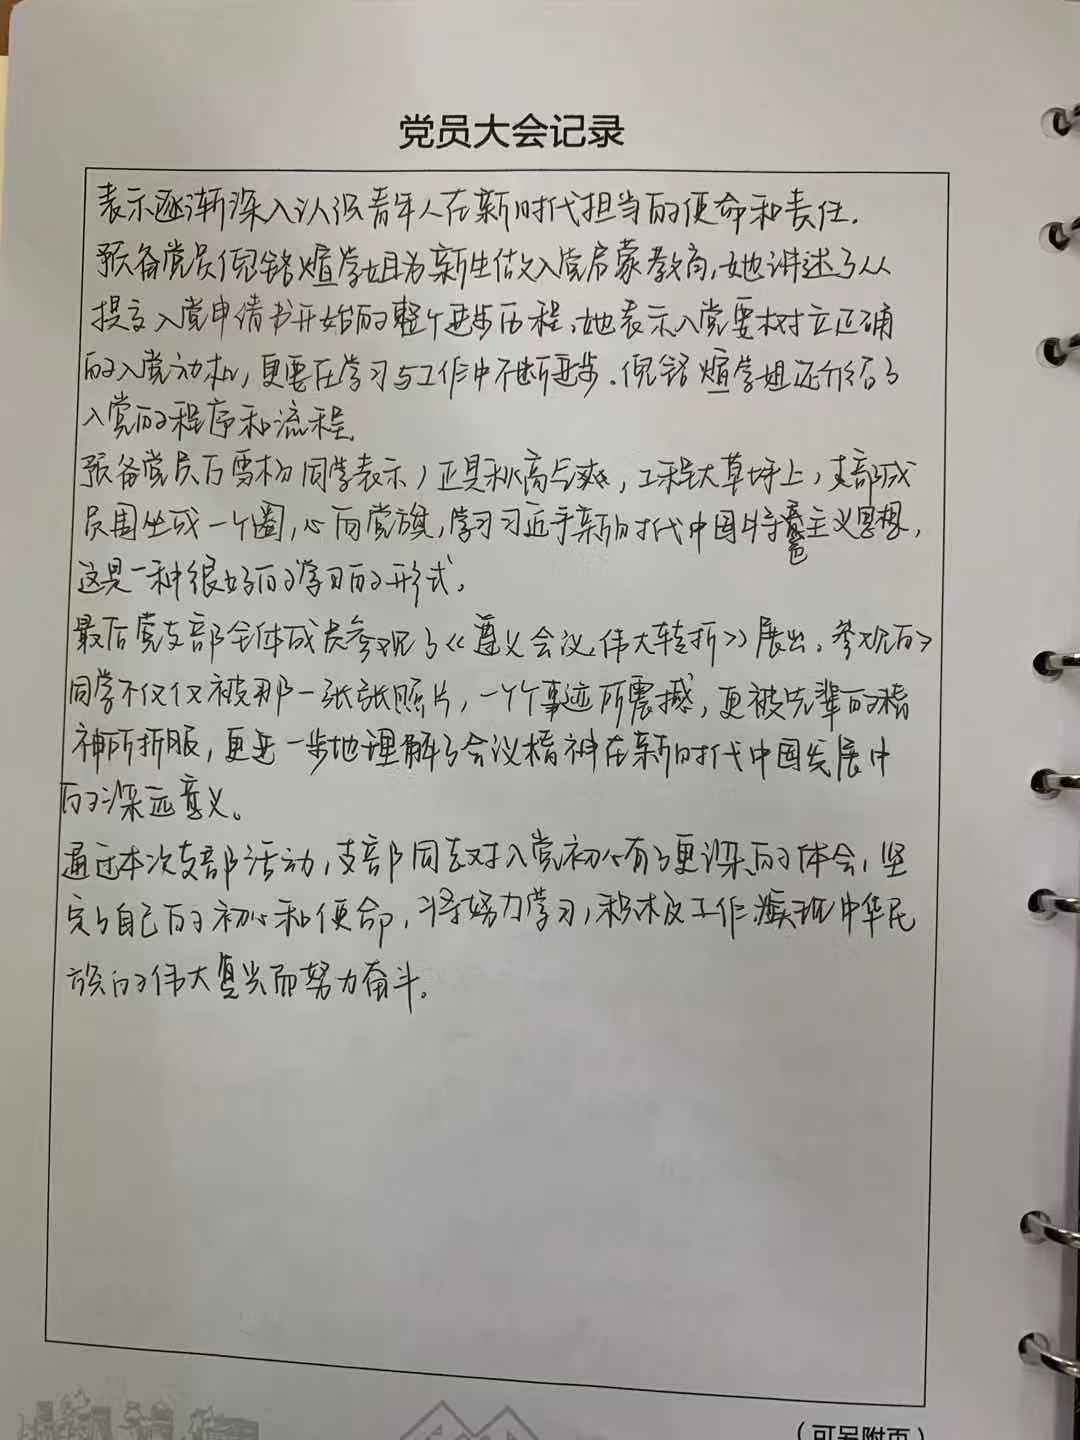 党员大会记录
表示逐渐深入认识青年人在新时代担当的使命和责任.
预备党员倪铭煊学姐为新生做入党启蒙教育,她讲述了从
提交入党申请书开始的整个进步历程,她表示入党要树立正确
的入党动机,更要在学习与工作中不断进步.倪铭煊学姐还介绍了
入党的程序和流程.
预备党员万雪杨同学表示,正是秋高气爽,工程大草坪上,支部成
员围坐成一个圈,心向党旗,学习习近平新时代中国特色主义思想,
这是一种很好的学习的形式。
最后党支部全体成员参观了《遵义会议,伟大转折》展出。参观的
同学不仅仅被那一张张照片,一个个事迹所震撼,更被先辈的精
神所折服,更进一步地理解了会议精神在新时代中国发展中
的深远意义。
通过本次支部活动,支部同志对入党初心有了更深的体会,坚
定了自己的初心和使命,将努力学习,积极工作,为实现中华民
族的伟大复兴而努力奋斗。
(可另附页)